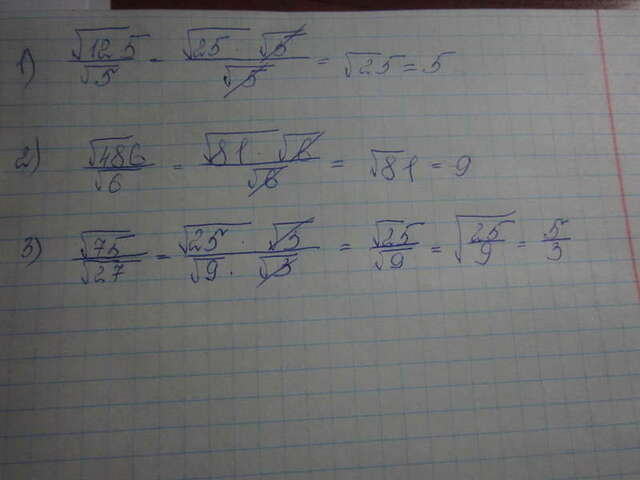 1) √125/√5 = √25 · √5/√5 = √25 = 5
2) √486/√6 = √81 · √6/√6 = √81 = 9
3) √75/√27 = √25 · √3/√9 · √3 = √25/√9 = √25/9 = 5/3